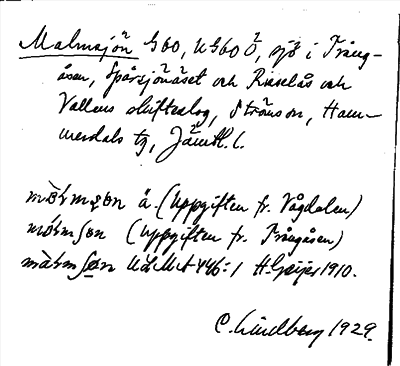 Malmsjön G60, UG60Ö, sjö i Trång-
åsen, Spårsjönäset och Risselås och
Vallens skifteslag, Ströms sn, Ham-
merdals tg, Jämtl. l.
å. (Uppgiften fr. Vågdalen)
(Uppgiften fr. Trångåsen)
446:1 H. Geijer 1910.
C. Lindberg 1929.